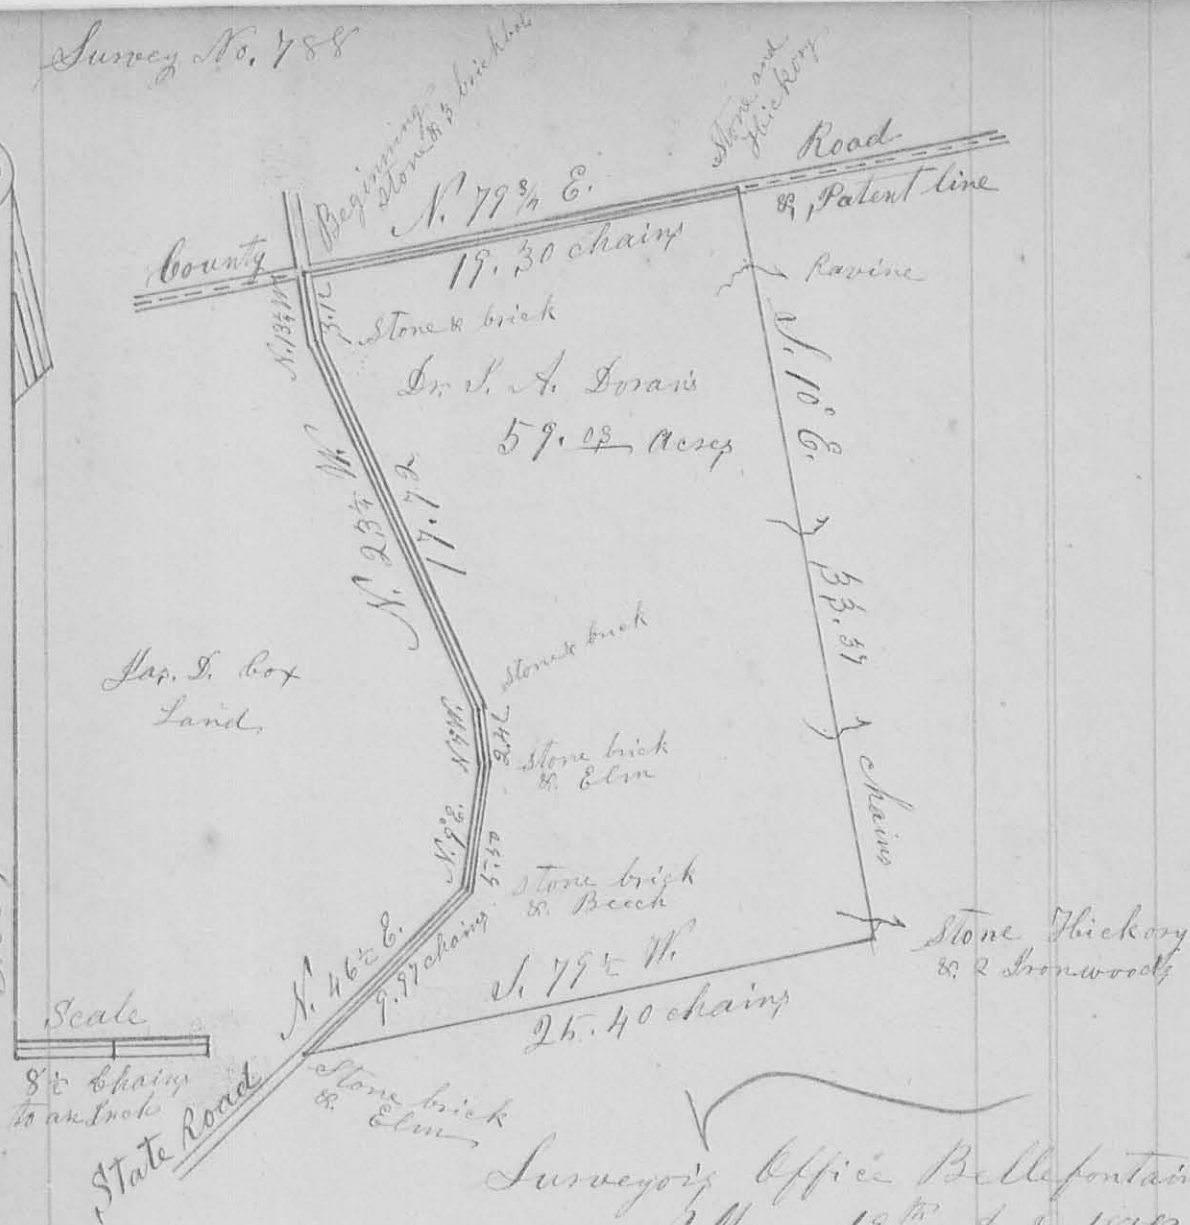 Survey No. 788
Beginning
Stone & 3 brickbats
Stone and
Hickory
Road
& Patent line
N. 79¾ E.
19.30 chains
County
N. 13¼ W.
3.12
Stone & brick
Ravine
Dr. S. A. Dorans
59.03 Acres
S. 10° E.
33.57
chains
N. 23¾ W.
17.72
Jas. D. Cox
Land
Stone & brick
2.47
Stone brick
& Elm
5.50
Stone brick
& Beech
N. 46½ E.
9.97 chains
S. 79½ W.
25.40 chains
Stone Hickory
& 2 Ironwoods
Scale
8½ Chains
to an Inch
State Road
Stone brick
& Elm
Surveyor's Office Bellefontain